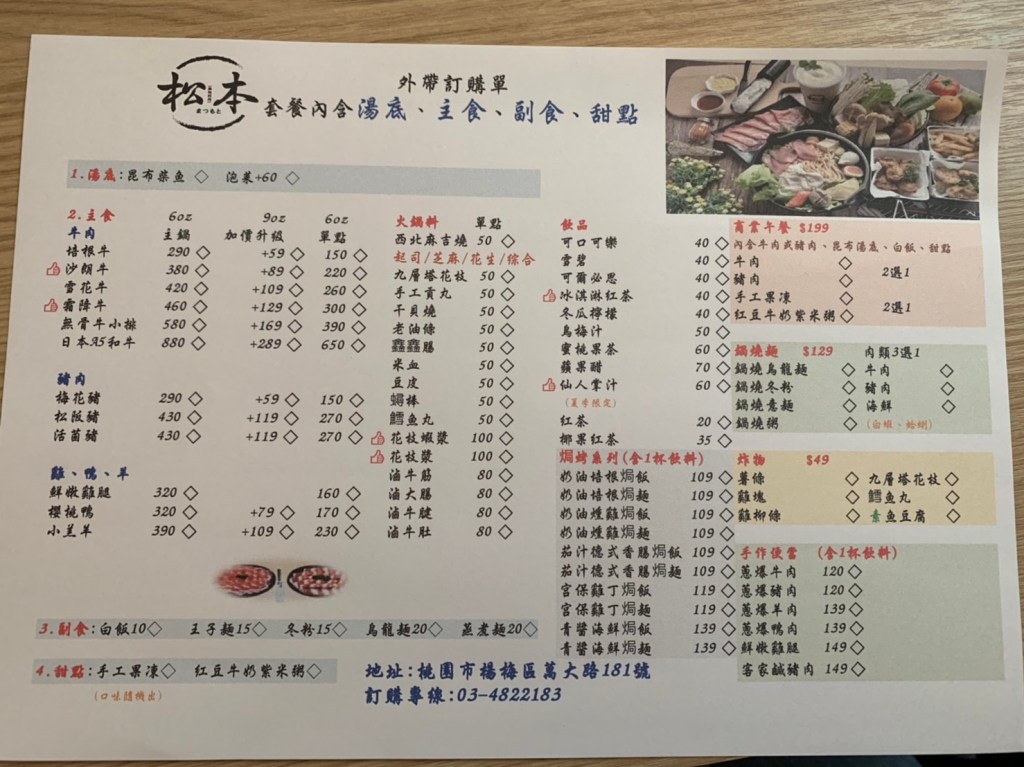 松本
まつもと
外帶訂購單
套餐內含湯底、主食、副食、甜點
1.湯底:昆布柴魚 ◇ 泡菜+60 ◇
2.主食 6oz 9oz 6oz
牛肉 主鍋 加價升級 單點
培根牛 290 ◇ +59 ◇ 150 ◇
沙朗牛 380 ◇ +89 ◇ 220 ◇
雪花牛 420 ◇ +109 ◇ 260 ◇
霜降牛 460 ◇ +129 ◇ 300 ◇
無骨牛小排 580 ◇ +169 ◇ 390 ◇
日本A5和牛 880 ◇ +289 ◇ 650 ◇
豬肉
梅花豬 290 ◇ +59 ◇ 150 ◇
松阪豬 430 ◇ +119 ◇ 270 ◇
活菌豬 430 ◇ +119 ◇ 270 ◇
雞、鴨、羊
鮮嫩雞腿 320 ◇ 160 ◇
櫻桃鴨 320 ◇ +79 ◇ 170 ◇
小羔羊 390 ◇ +109 ◇ 230 ◇
火鍋料 單點
西北麻吉燒 50 ◇
起司/芝麻/花生/綜合
九層塔花枝 50 ◇
手工貢丸 50 ◇
干貝燒 50 ◇
老油條 50 ◇
鑫鑫腸 50 ◇
米血 50 ◇
豆皮 50 ◇
蟳棒 50 ◇
鱈魚丸 50 ◇
花枝蝦漿 100 ◇
花枝漿 100 ◇
滷牛筋 80 ◇
滷大腸 80 ◇
滷牛腱 80 ◇
滷牛肚 80 ◇
飲品
可口可樂 40 ◇
雪碧 40 ◇
可爾必思 40 ◇
冰淇淋紅茶 40 ◇
冬瓜檸檬 40 ◇
烏梅汁 50 ◇
蜜桃果茶 60 ◇
蘋果醋 70 ◇
仙人掌汁 60 ◇
(夏季限定)
紅茶 20 ◇
椰果紅茶 35 ◇
焗烤系列(含1杯飲料)
奶油培根焗飯 109 ◇
奶油培根焗麵 109 ◇
奶油燻雞焗飯 109 ◇
奶油燻雞焗麵 109 ◇
茄汁德式香腸焗飯 109 ◇
茄汁德式香腸焗麵 109 ◇
宮保雞丁焗飯 119 ◇
宮保雞丁焗麵 119 ◇
青醬海鮮焗飯 139 ◇
青醬海鮮焗麵 139 ◇
商業午餐 $199
內含牛肉或豬肉、昆布湯底、白飯、甜點
牛肉 ◇ 2選1
豬肉 ◇
手工果凍 ◇ 2選1
紅豆牛奶紫米粥 ◇
鍋燒麵 $129 肉類3選1
鍋燒烏龍麵 ◇ 牛肉 ◇
鍋燒冬粉 ◇ 豬肉 ◇
鍋燒意麵 ◇ 海鮮 ◇
鍋燒粥 ◇ (白蝦、蛤蜊)
炸物 $49
薯條 ◇ 九層塔花枝 ◇
雞塊 ◇ 鱈魚丸 ◇
雞柳條 ◇ 素魚豆腐 ◇
手作便當 (含1杯飲料)
蔥爆牛肉 120 ◇
蔥爆豬肉 120 ◇
蔥爆羊肉 139 ◇
蔥爆鴨肉 139 ◇
鮮嫩雞腿 149 ◇
客家鹹豬肉 149 ◇
3.副食:白飯10◇ 王子麵15◇ 冬粉15◇ 烏龍麵20◇ 蒸煮麵20◇
4.甜點:手工果凍◇ 紅豆牛奶紫米粥◇
(口味隨機出)
地址:桃園市楊梅區萬大路181號
訂購專線:03-4822183